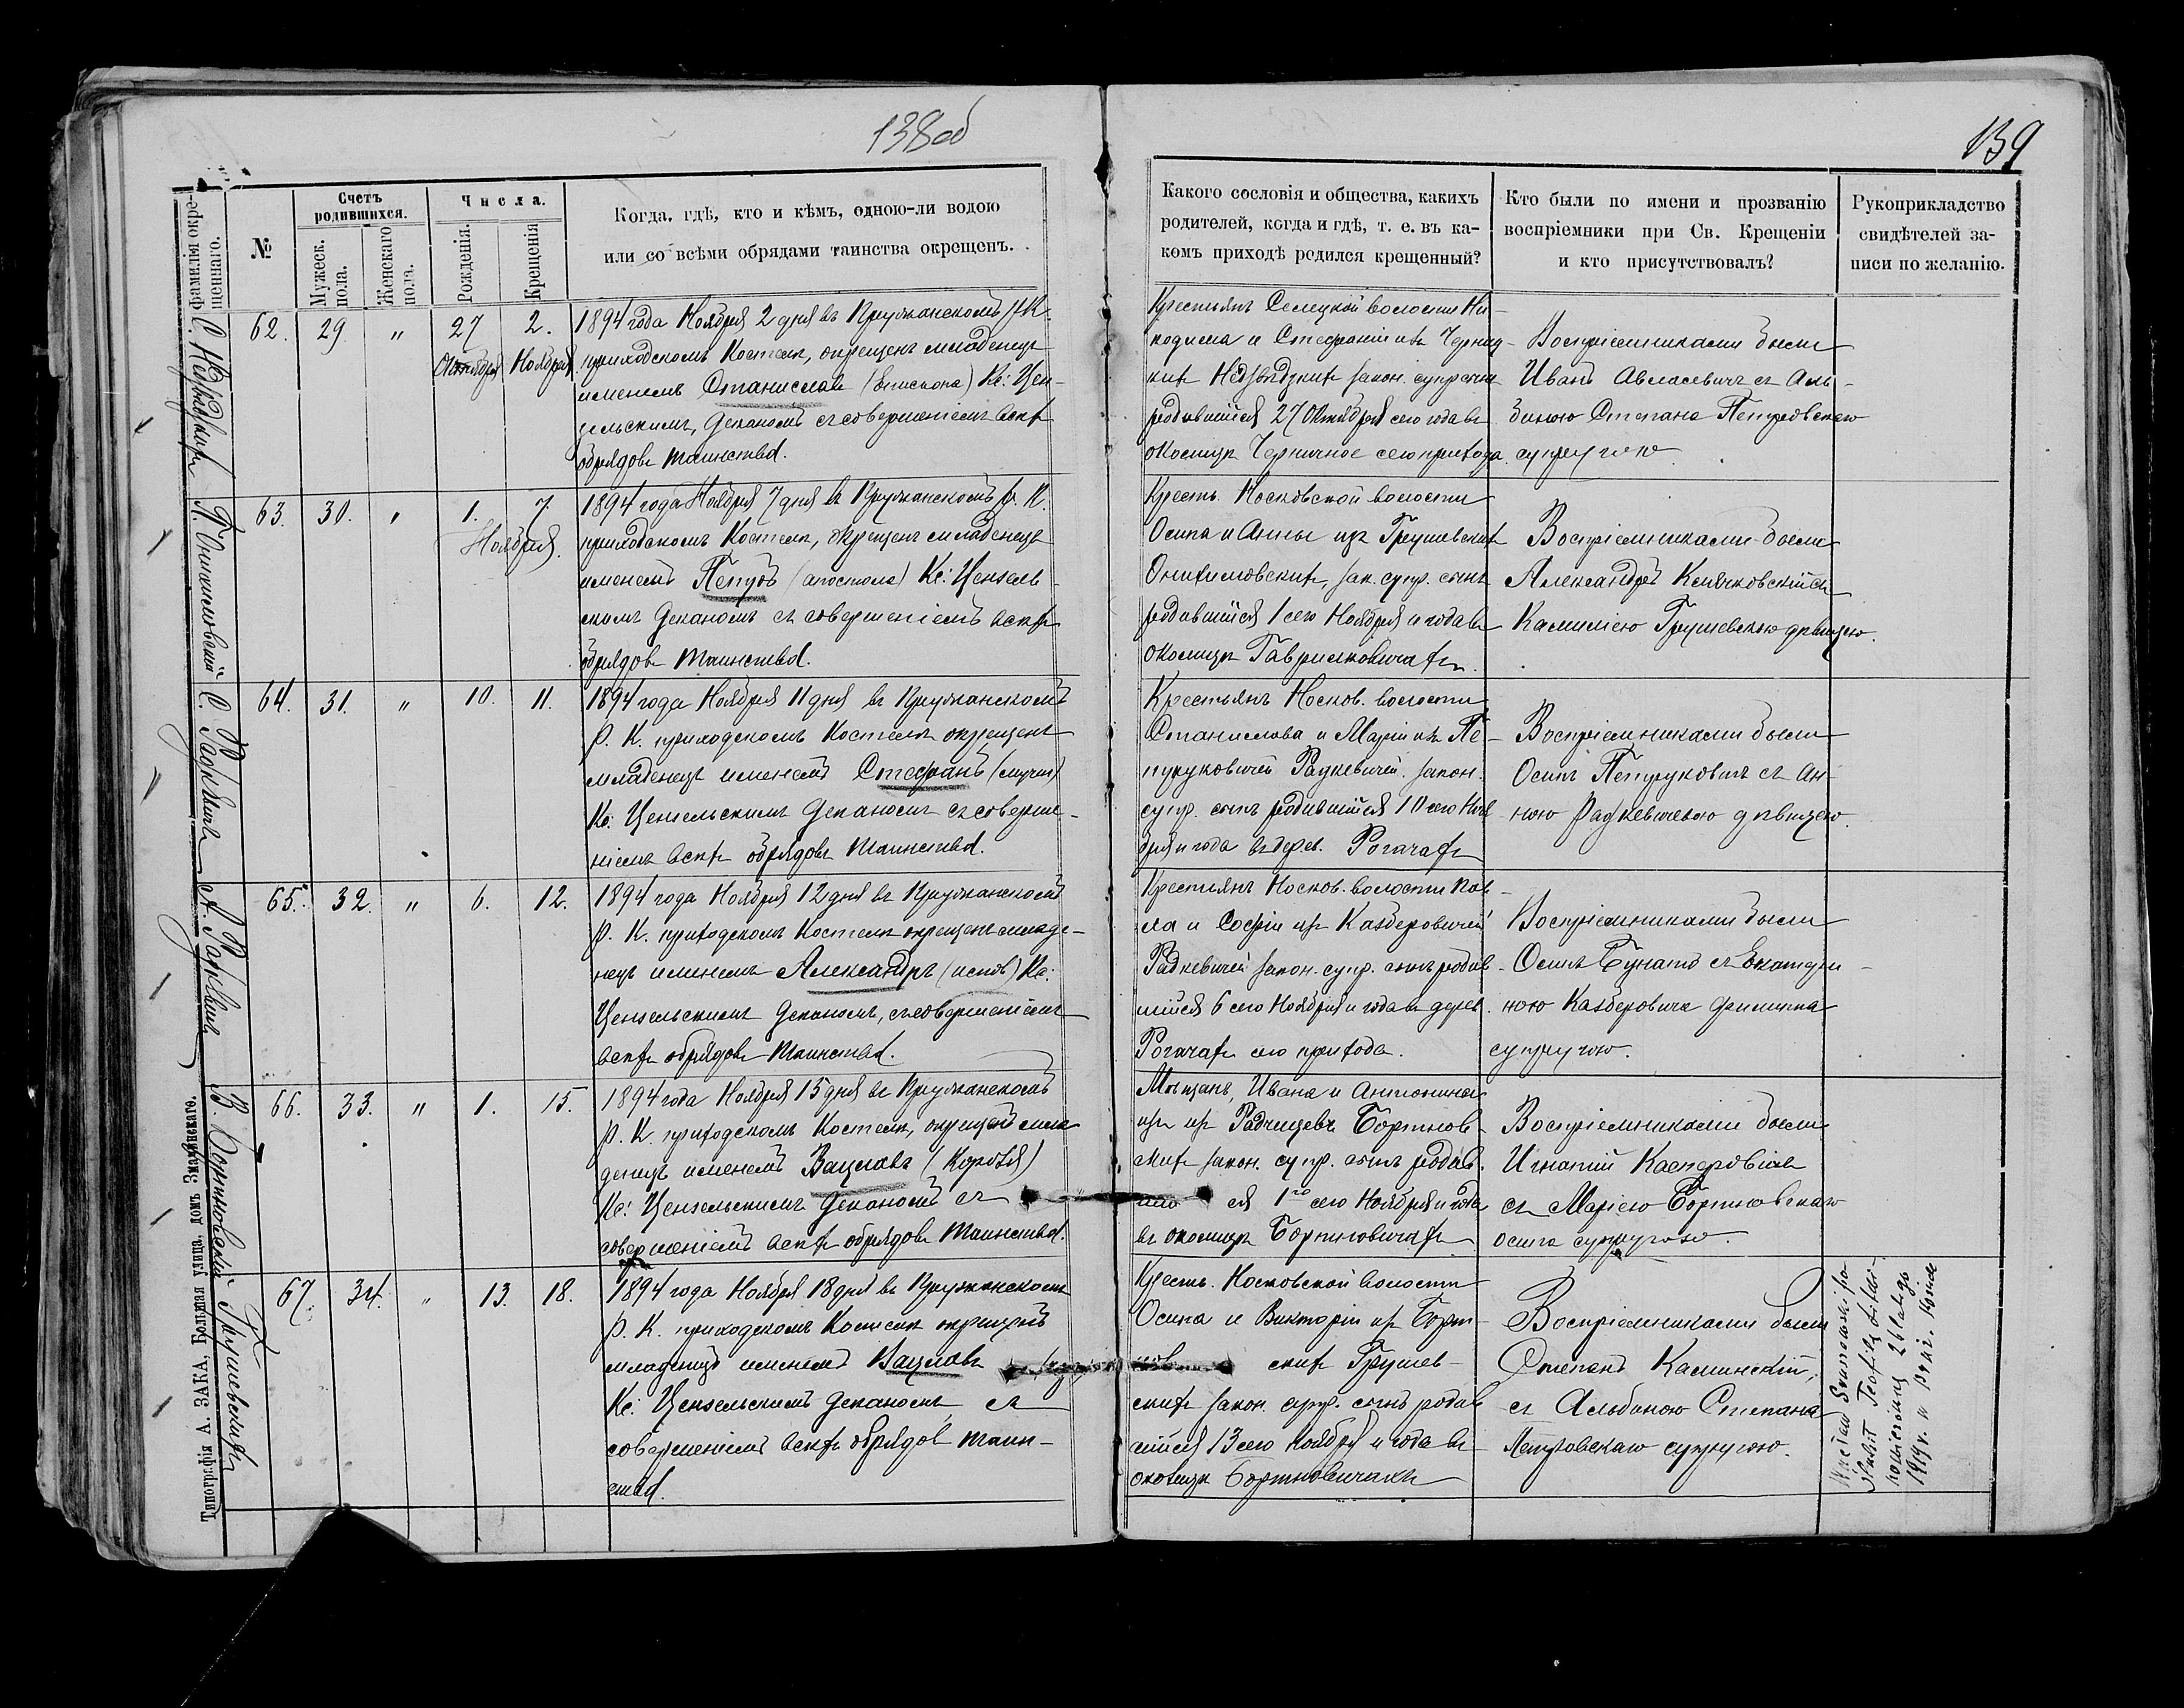 138об
139
фамилія окре-
щеннаго.
№
Счетъ
родившихся.
Мужеск.
пола.
Женскаго
пола.
Числа.
Рожденія.
Крещенія
Когда, гдѣ, кто и кѣмъ, одною-ли водою
или со всѣми обрядами таинства окрещенъ.
Какого сословія и общества, какихъ
родителей, когда и гдѣ, т. е. въ ка-
комъ приходѣ родился крещенный?
Кто были по имени и прозванію
воспріемники при Св. Крещеніи
и кто присутствовалъ?
Рукоприкладство
свидѣтелей за-
писи по желанію.
62. 29. " 27 2.
Октября Ноября
1894 года Ноября 2 дня въ Пружанскомъ Р. К.
приходскомъ Костелѣ, окрещенъ младенецъ
именемъ Станиславъ (Епископа) Кс: Цен-
зельскимъ, Деканомъ съ совершеніемъ всѣхъ
обрядовъ таинства.
Крестьянъ Селецкой волости Ни-
кодима и Стефаніи изъ Черниц-
кихъ законн. супр. сынъ
родившійся 27 Октября сего года въ
околицѣ Черничное сего прихода.
Воспріемниками были
Иванъ Авласевичъ съ Аль-
биною Степана Петровскаго
супругою
П. Онихимовскій
63. 30. " 1. 7.
Ноября.
1894 года Ноября 7 дня въ Пружанскомъ Р. К.
приходскомъ Костелѣ, окрещенъ младенецъ
именемъ Петръ (апостола) Кс: Цензель-
скимъ Деканомъ съ совершеніемъ всѣхъ
обрядовъ таинства.
Кресть. Носковской волости
Осипа и Анны изъ Грушевскихъ
Онихимовскихъ, зак. супр. сынъ
родившійся 1 сего Ноября и года въ
околицѣ Гавриловичахъ.
Воспріемниками были
Александръ Клячковскій съ
Камилею Грушевскою дѣвицею.
С. Радкевичъ
64. 31. " 10. 11.
1894 года Ноября 11 дня въ Пружанскомъ
Р. К. приходскомъ Костелѣ окрещенъ
младенецъ именемъ Стефанъ (мучен)
Кс: Цензельскимъ Деканомъ съ соверше-
ніемъ всѣхъ обрядовъ таинства.
Крестьянъ Носков. волости
Станислава и Маріи изъ Пе-
труковичей Радкевичей. закон.
супр. сынъ родившійся 10 сего Ноя
бря и года въ дерев. Рогачахъ
Воспріемниками были
Осипъ Петруковичъ съ Ан-
ною Радкевичевою дѣвицею.
А. Радкевичъ
65. 32. " 6. 12.
1894 года Ноября 12 дня въ Пружанскомъ
Р. К. приходскомъ Костелѣ окрещенъ младе-
нецъ именемъ Александръ (испов) Кс:
Цензельскимъ Деканомъ, съ совершеніемъ
всѣхъ обрядовъ таинства.
Крестьянъ Носков. волости Пав-
ла и Софіи изъ Казберовичей
Радкевичей закон. супр. сынъ родив-
шійся 6 сего Ноября и года въ дерев.
Рогачахъ сего прихода.
Воспріемниками были
Осипъ съ Екатери-
ною Казберовича Филиппа
супругою.
В. Бортновскій
66. 33. " 1. 15.
1894 года Ноября 15 дня въ Пружанскомъ
Р. К. приходскомъ Костелѣ, окрещенъ мла
денецъ именемъ Вацлавъ (Короля)
Кс: Цензельскимъ Деканомъ съ
совершеніемъ всѣхъ обрядовъ таинства.
Мѣщанъ, Ивана и Антонины
изъ Бортнов-
скихъ закон. супр. сынъ родив.
ся 1го сего Ноября и года
въ околицѣ Бортновичахъ
Воспріемниками были
Игнатій
съ Маріею Бортновскаго
Осипа супругою.
В. Грушевскій
67. 34. " 13. 18.
1894 года Ноября 18 дня въ Пружанскомъ
Р. К. приходскомъ Костелѣ окрещенъ
младенецъ именемъ Вацлавъ
Кс: Цензельскимъ Деканомъ, съ
совершеніемъ всѣхъ обрядовъ таин-
ства.
Кресть. Носковской волости
Осипа и Викторіи изъ Борт-
нов скихъ Грушев-
скихъ закон. супр. сынъ родив
шійся 13 сего Ноября и года въ
околицѣ Бортновичахъ
Воспріемниками были
Степанъ Каминскій,
съ Альбиною Степана
Петровскаго супругою.
Типографія А. ЗАКА, Большая улица, домъ Знаминскаго.